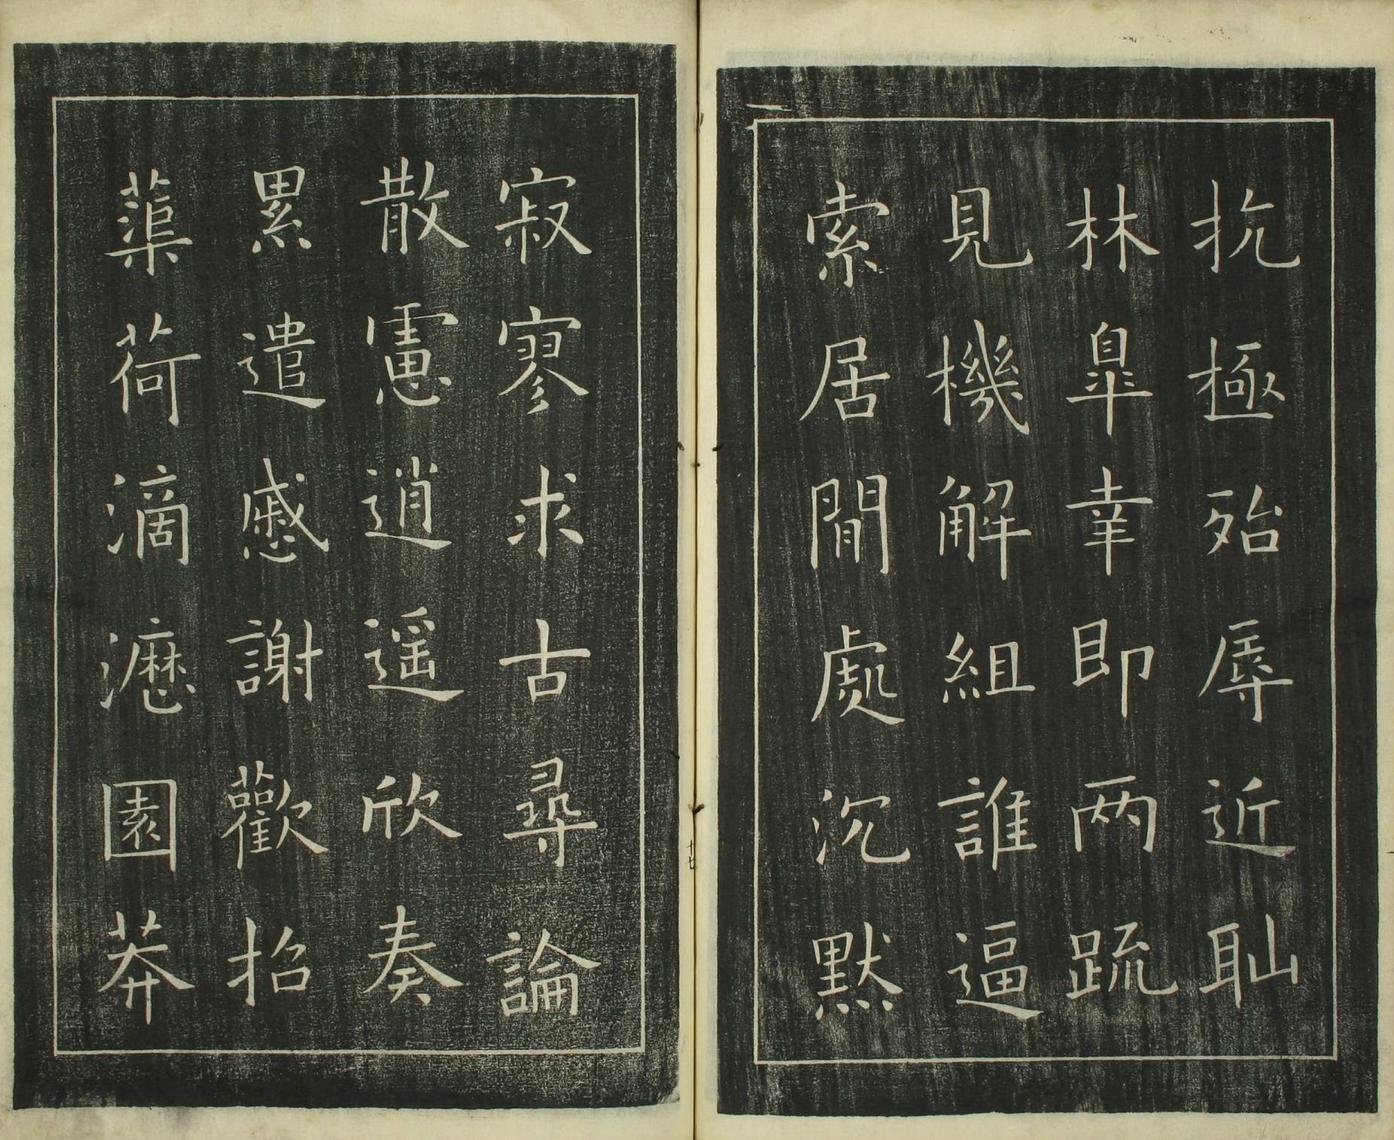 抗極殆辱近耻
林皐幸即兩䟽
見機解組誰逼
索居閒處沉默
寂寥求古尋論
散慮逍遥欣奏
累遣慼謝歡招
蕖荷滴瀝園莽
十七